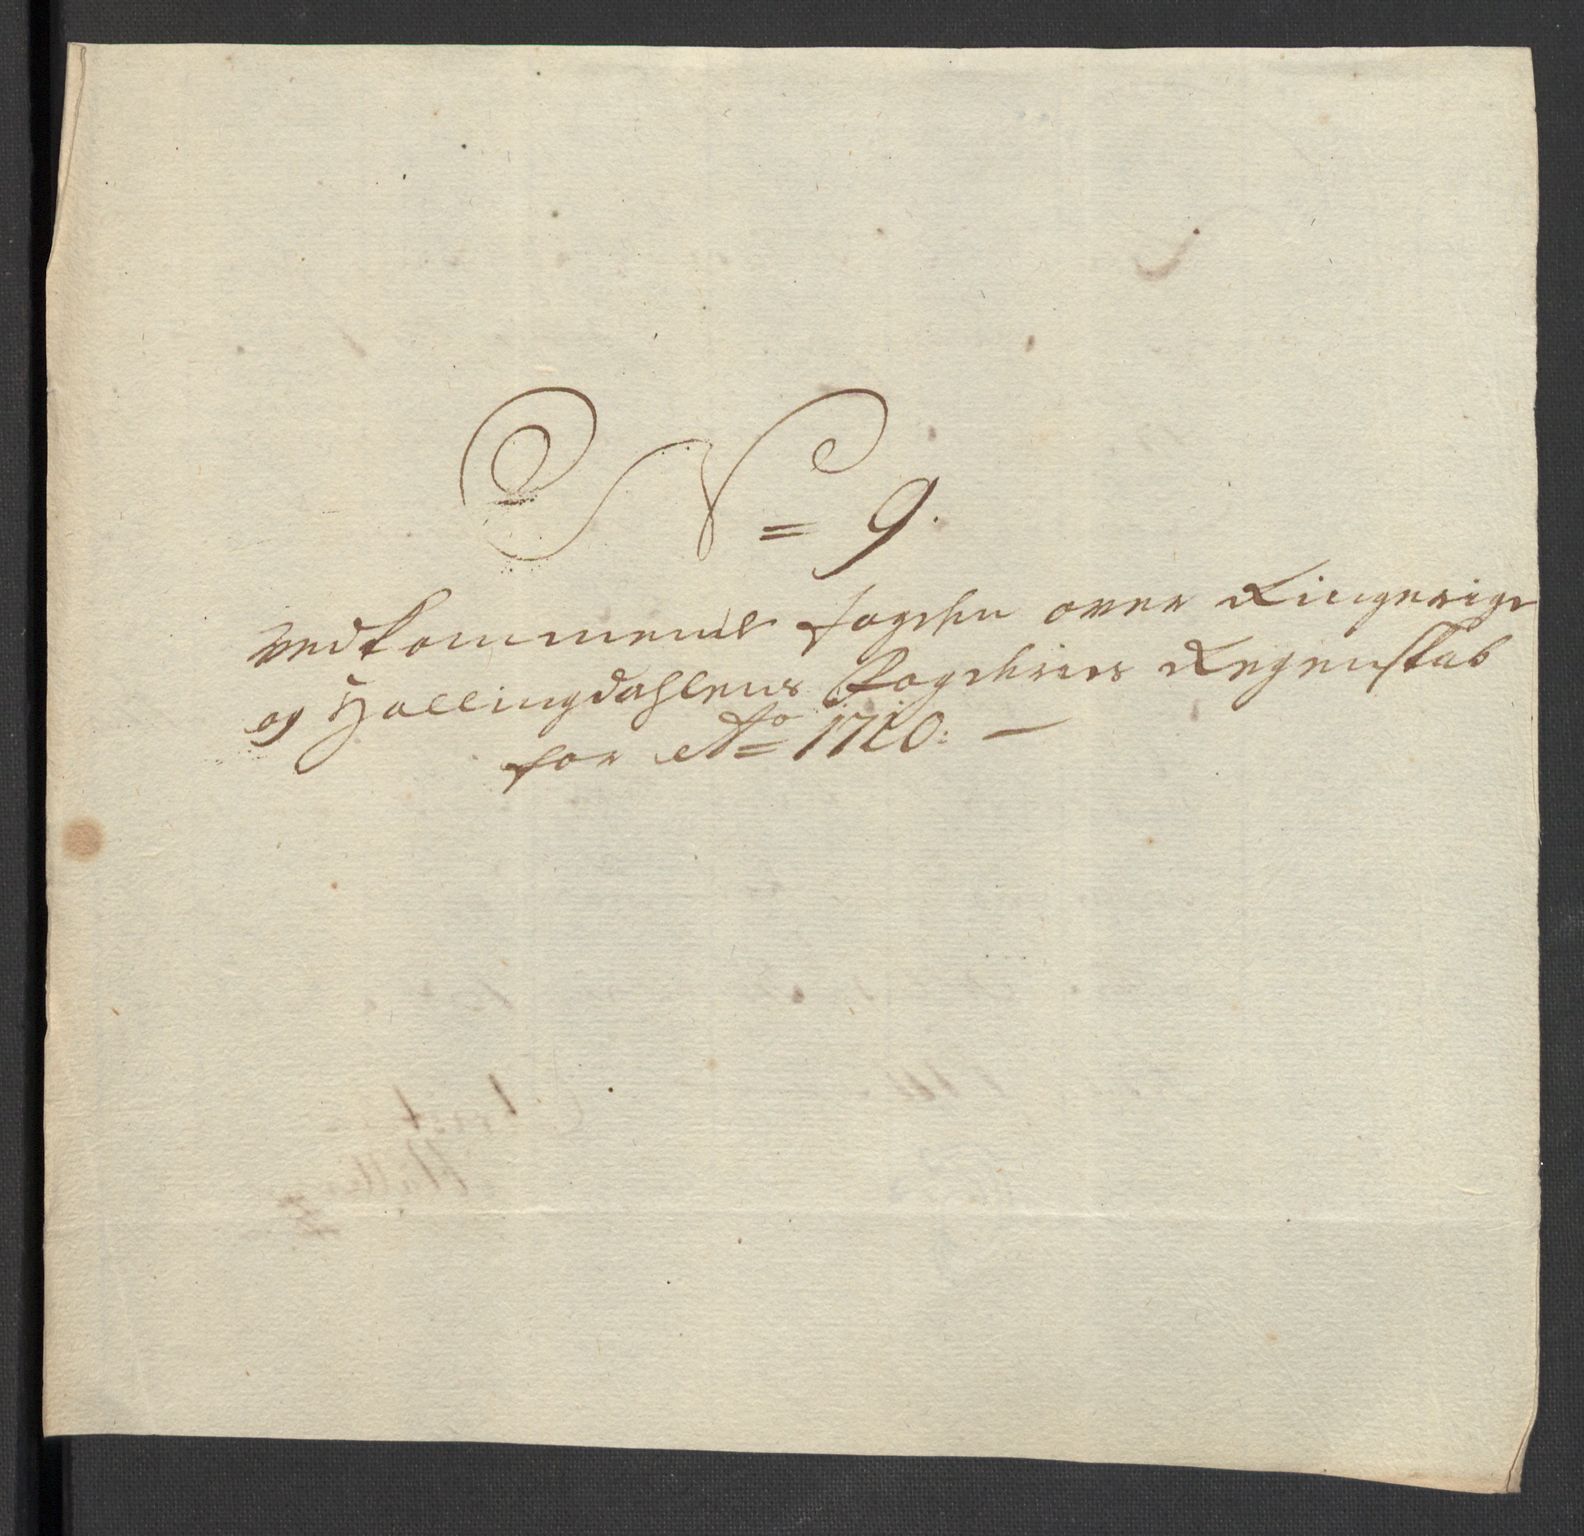 No 9.
vedkommende fogden over Ringerige
og Hallingdahlens Fogderies Regenskab
for Ao 1710: —